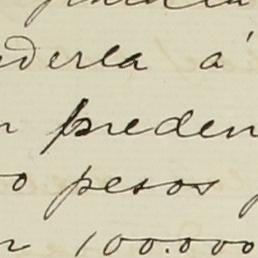 ederla á
n pueden
o pesos
n 100.000